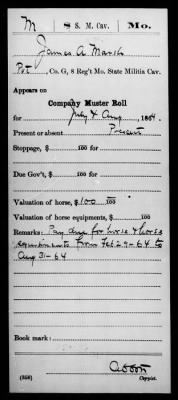 M 8 S. M. Cav. Mo.
James A. Marsh
Pvt, Co. G, 8 Reg't Mo. State Militia Cav.
Appears on
Company Muster Roll
for July & Aug, 1864.
Present or absent Present
Stoppage, $ 100 for
Due Gov't, $ 100 for
Valuation of horse, $ 100 100
Valuation of horse equipments, $ 100
Remarks: Pay due for horse & horse
equipments from Feb 29-64 to
Aug 31-64
Book mark:
Abbott
(358) Copyist.